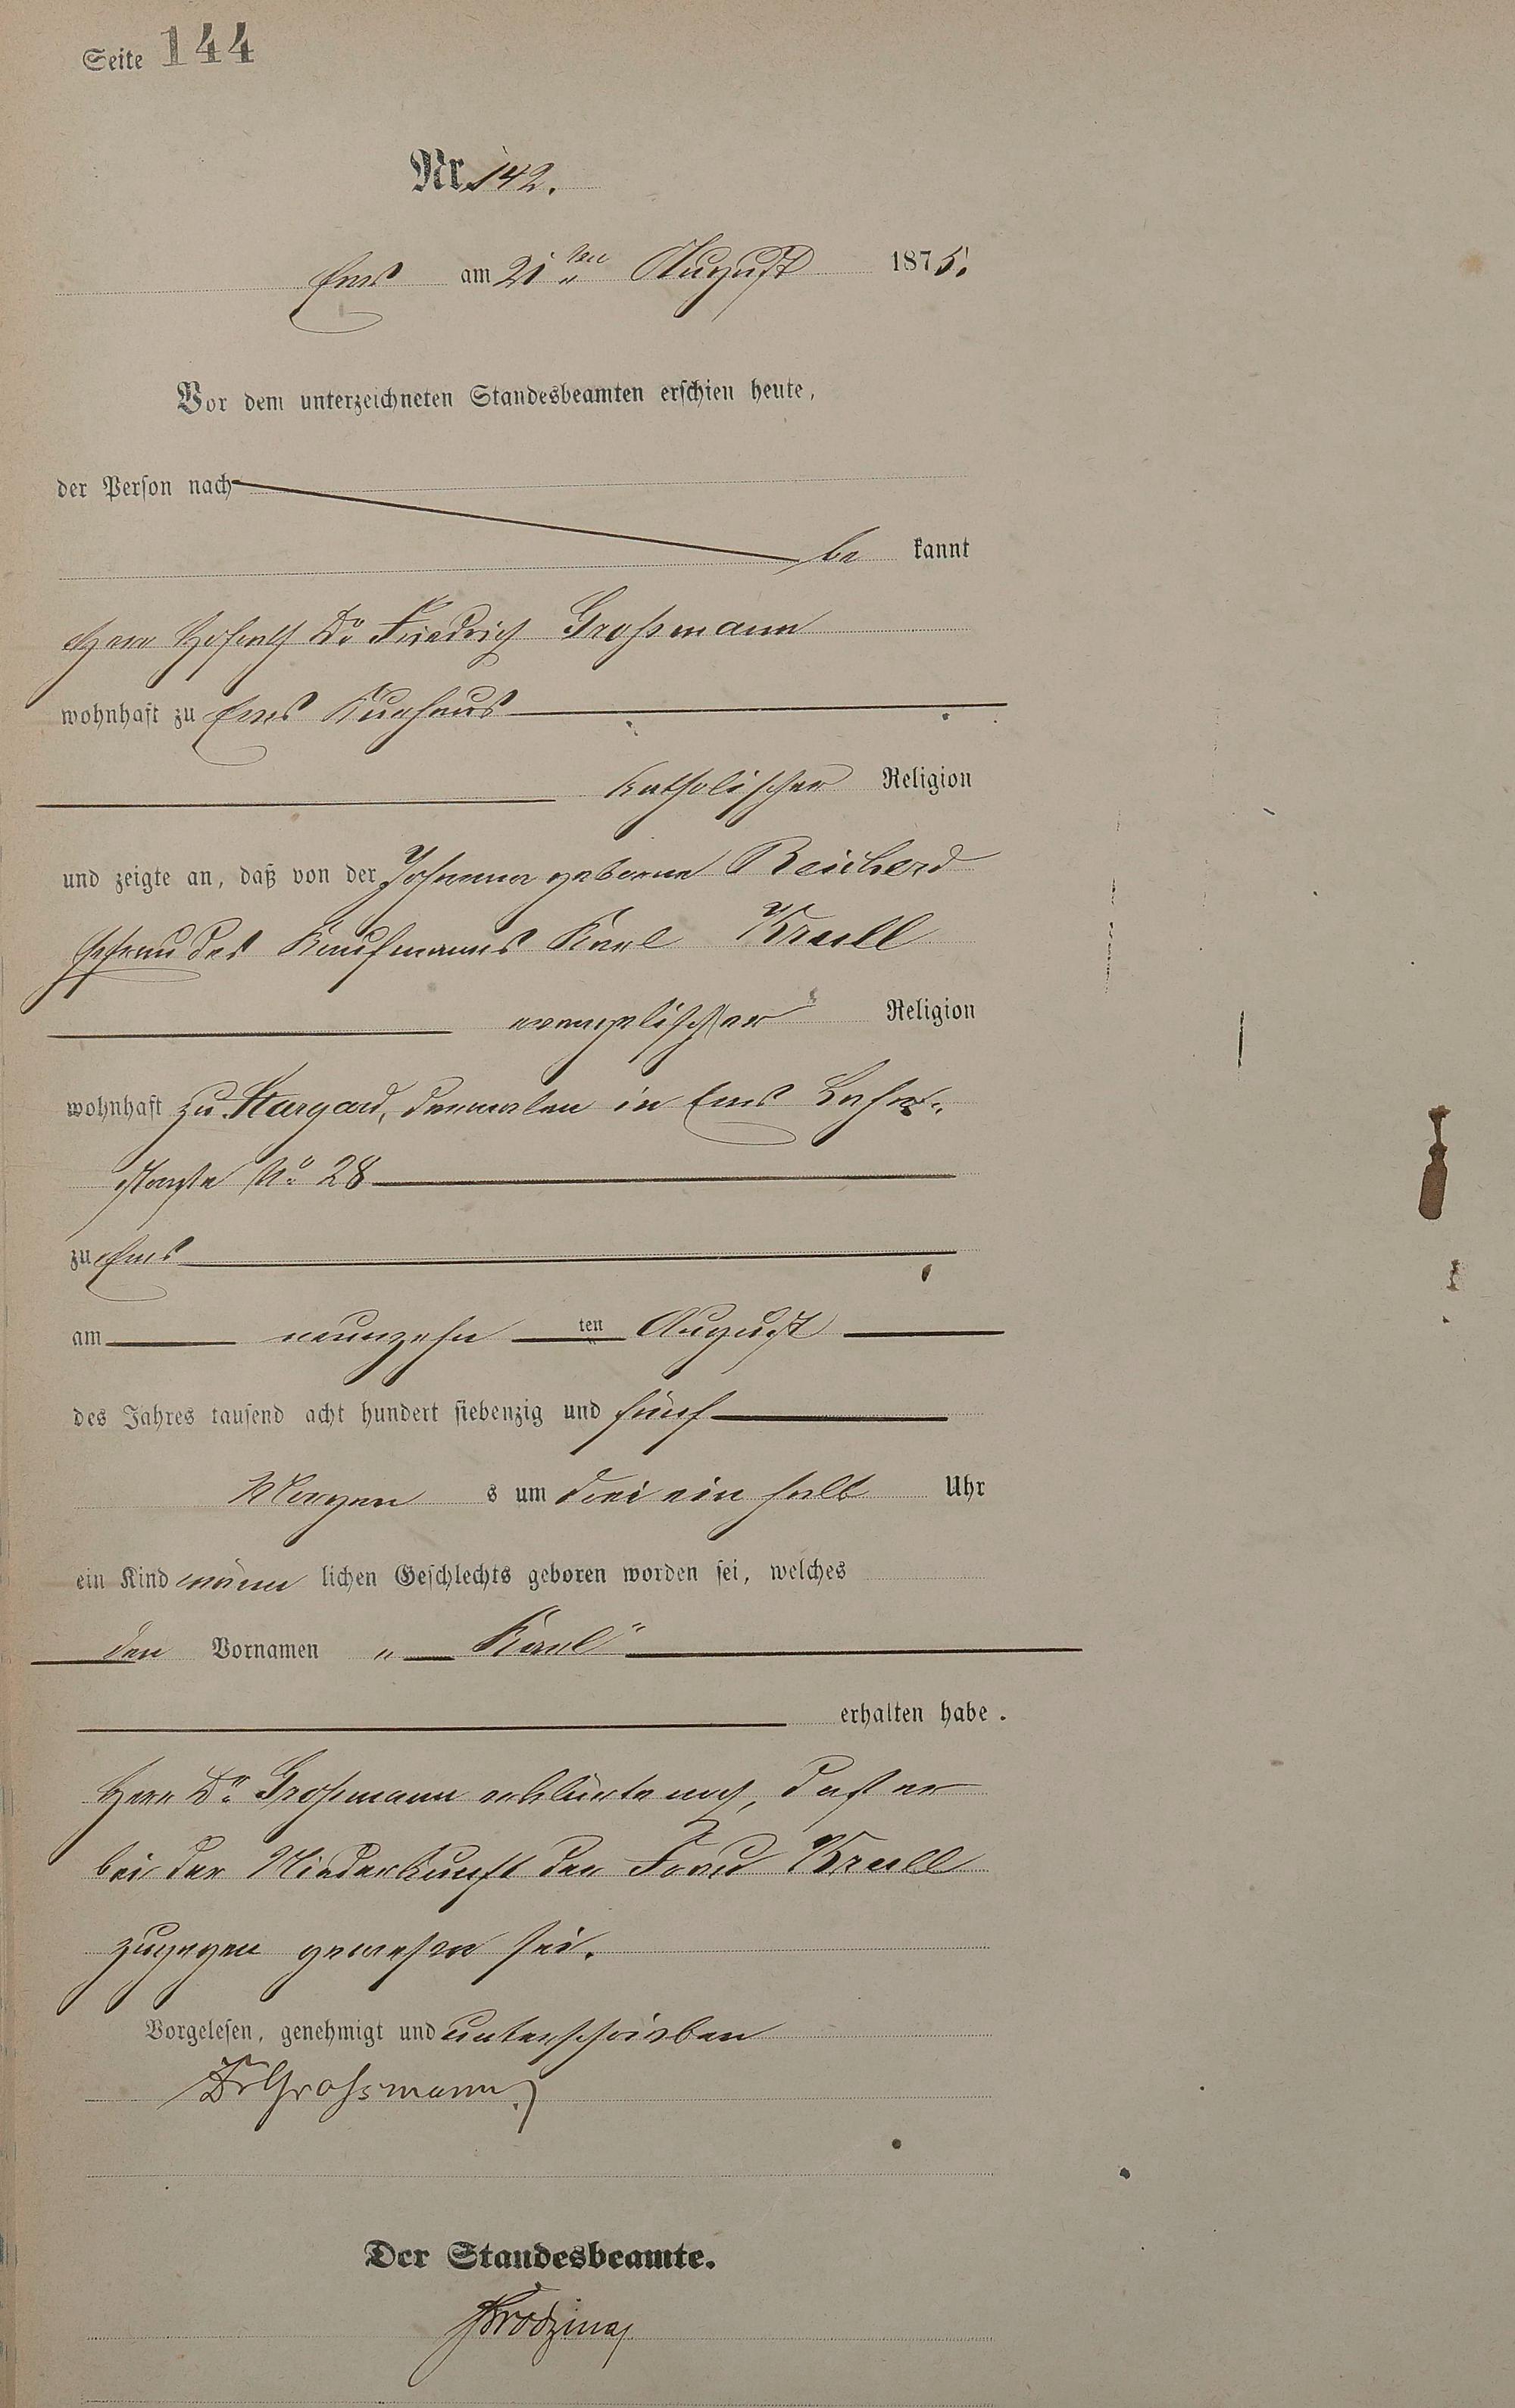 Seite 144
Nr. 142.
Ems am 21ten August 1875.
Vor dem unterzeichneten Standesbeamten erschien heute,
der Person nach
be kannt
Herr Hofrath Dr Friedrich Großmann
wohnhaft zu Ems Kurhaus
katholischer Religion
und zeigte an, daß von der Johanna geborne Reichard
Ehefrau des Kaufmanns Karl Krull
evangelischer Religion
wohnhaft zu Stargard, dermalen in Ems Lahn-
straße No 28
zu Ems
am neunzehn ten August
des Jahres tausend acht hundert siebenzig und fünf
Morgen s um drei ein halb Uhr
ein Kind männ lichen Geschlechts geboren worden sei, welches
den Vornamen „Karl“
erhalten habe.
Herr Dr Großmann erklärte noch, daß er
bei der Niederkunft der Frau Krull
zugegen gewesen sei.
Vorgelesen, genehmigt und unterschrieben
Dr Grossmann
Der Standesbeamte.